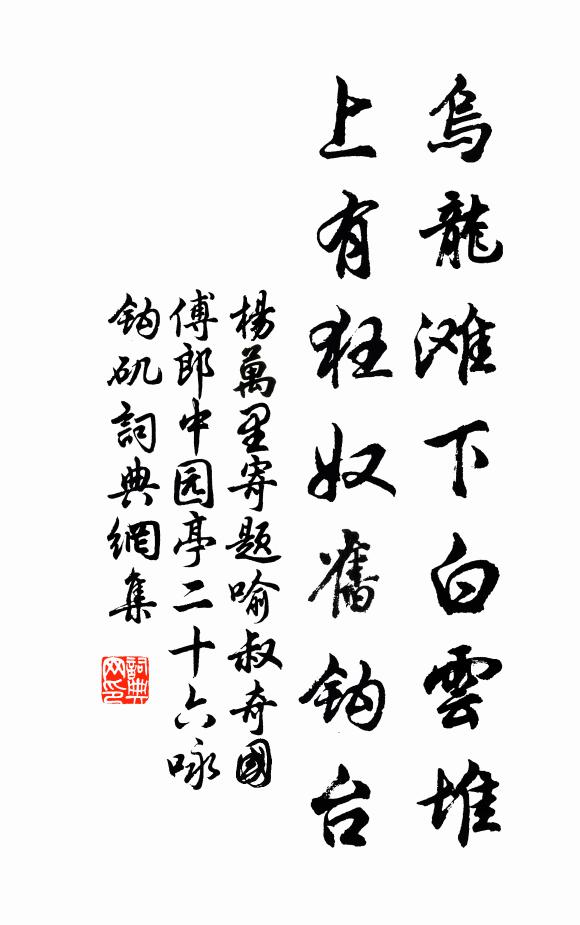 烏龍滩下白雲堆
上有狂奴舊钩台
楊萬里寄题喻叔奇國
傅郎中园亭二十六咏
钩矶詞典網集
詞典
网印